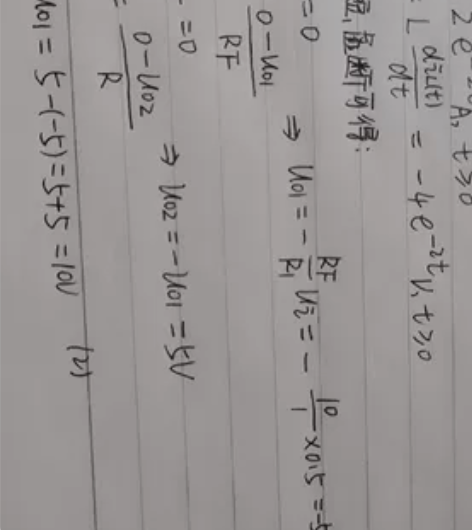 A, t≥0
L di(t)/dt = -4e^-2t V, t≥0
虚断可得:
=0
0-u01/RF ⇒ u01 = -RF/R1 ui = -10/1 ×0.5 = -5
=0
= 0-u02/R ⇒ u02 = -u01 = 5V
u01 = 5-(-5) = 5+5 = 10V (V)